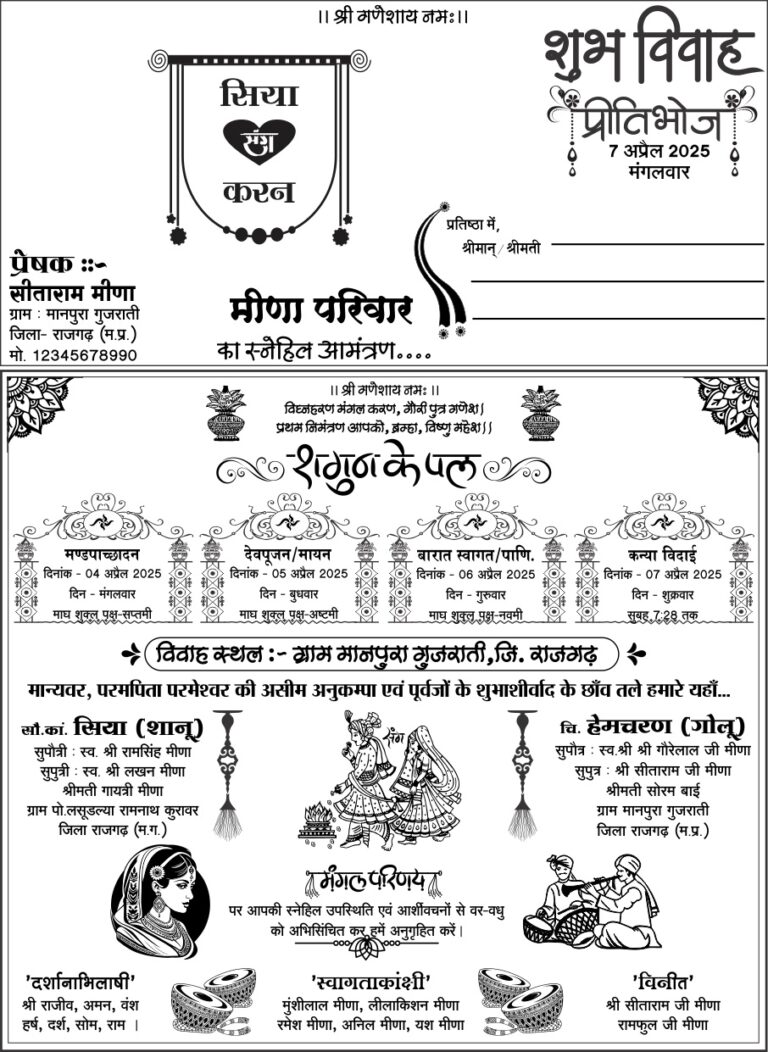 ।। श्री गणेशाय नमः।।
शुभ विवाह
प्रीतिभोज
7 अप्रैल 2025
मंगलवार
सिया
संग
करन
प्रतिष्ठा में,
श्रीमान् / श्रीमती
प्रेषक ::-
सीताराम मीणा
ग्राम : मानपुरा गुजराती
जिला- राजगढ़ (म.प्र.)
मो. 12345678990
मीणा परिवार
का स्नेहिल आमंत्रण....
।। श्री गणेशाय नमः ।।
विघ्नहरण मंगल करण, गौरी पुत्र गणेश।
प्रथम निमंत्रण आपको, ब्रम्हा, विष्णु महेश।।
शगुन के पल
मण्डपाच्छादन
दिनांक - 04 अप्रैल 2025
दिन - मंगलवार
माघ शुक्ल पक्ष-सप्तमी
देवपूजन/मायन
दिनांक - 05 अप्रैल 2025
दिन - बुधवार
माघ शुक्ल पक्ष-अष्टमी
बारात स्वागत/पाणि.
दिनांक - 06 अप्रैल 2025
दिन - गुरुवार
माघ शुक्ल पक्ष-नवमी
कन्या विदाई
दिनांक - 07 अप्रैल 2025
दिन - शुक्रवार
सुबह 7:28 तक
विवाह स्थल :- ग्राम मानपुरा गुजराती,जि. राजगढ़
मान्यवर, परमपिता परमेश्वर की असीम अनुकम्पा एवं पूर्वजों के शुभाशीर्वाद के छाँव तले हमारे यहाँ...
सौ.कां. सिया (शानू)
सुपौत्री : स्व. श्री रामसिंह मीणा
सुपुत्री : स्व. श्री लखन मीणा
श्रीमती गायत्री मीणा
ग्राम पो.लसूडल्या रामनाथ कुरावर
जिला राजगढ़ (म.ग.)
संग
चि. हेमचरण (गोलू)
सुपौत्र : स्व.श्री श्री गौरेलाल जी मीणा
सुपुत्र : श्री सीताराम जी मीणा
श्रीमती सोरम बाई
ग्राम मानपुरा गुजराती
जिला राजगढ़ (म.प्र.)
मंगल परिणय
पर आपकी स्नेहिल उपस्थिति एवं आर्शीवचनों से वर-वधु
को अभिसिंचित कर हमें अनुगृहित करें।
'दर्शनाभिलाषी'
श्री राजीव, अमन, वंश
हर्ष, दर्श, सोम, राम ।
'स्वागताकांक्षी'
मुंशीलाल मीणा, लीलाकिशन मीणा
रमेश मीणा, अनिल मीणा, यश मीणा
'विनीत'
श्री सीताराम जी मीणा
रामफुल जी मीणा